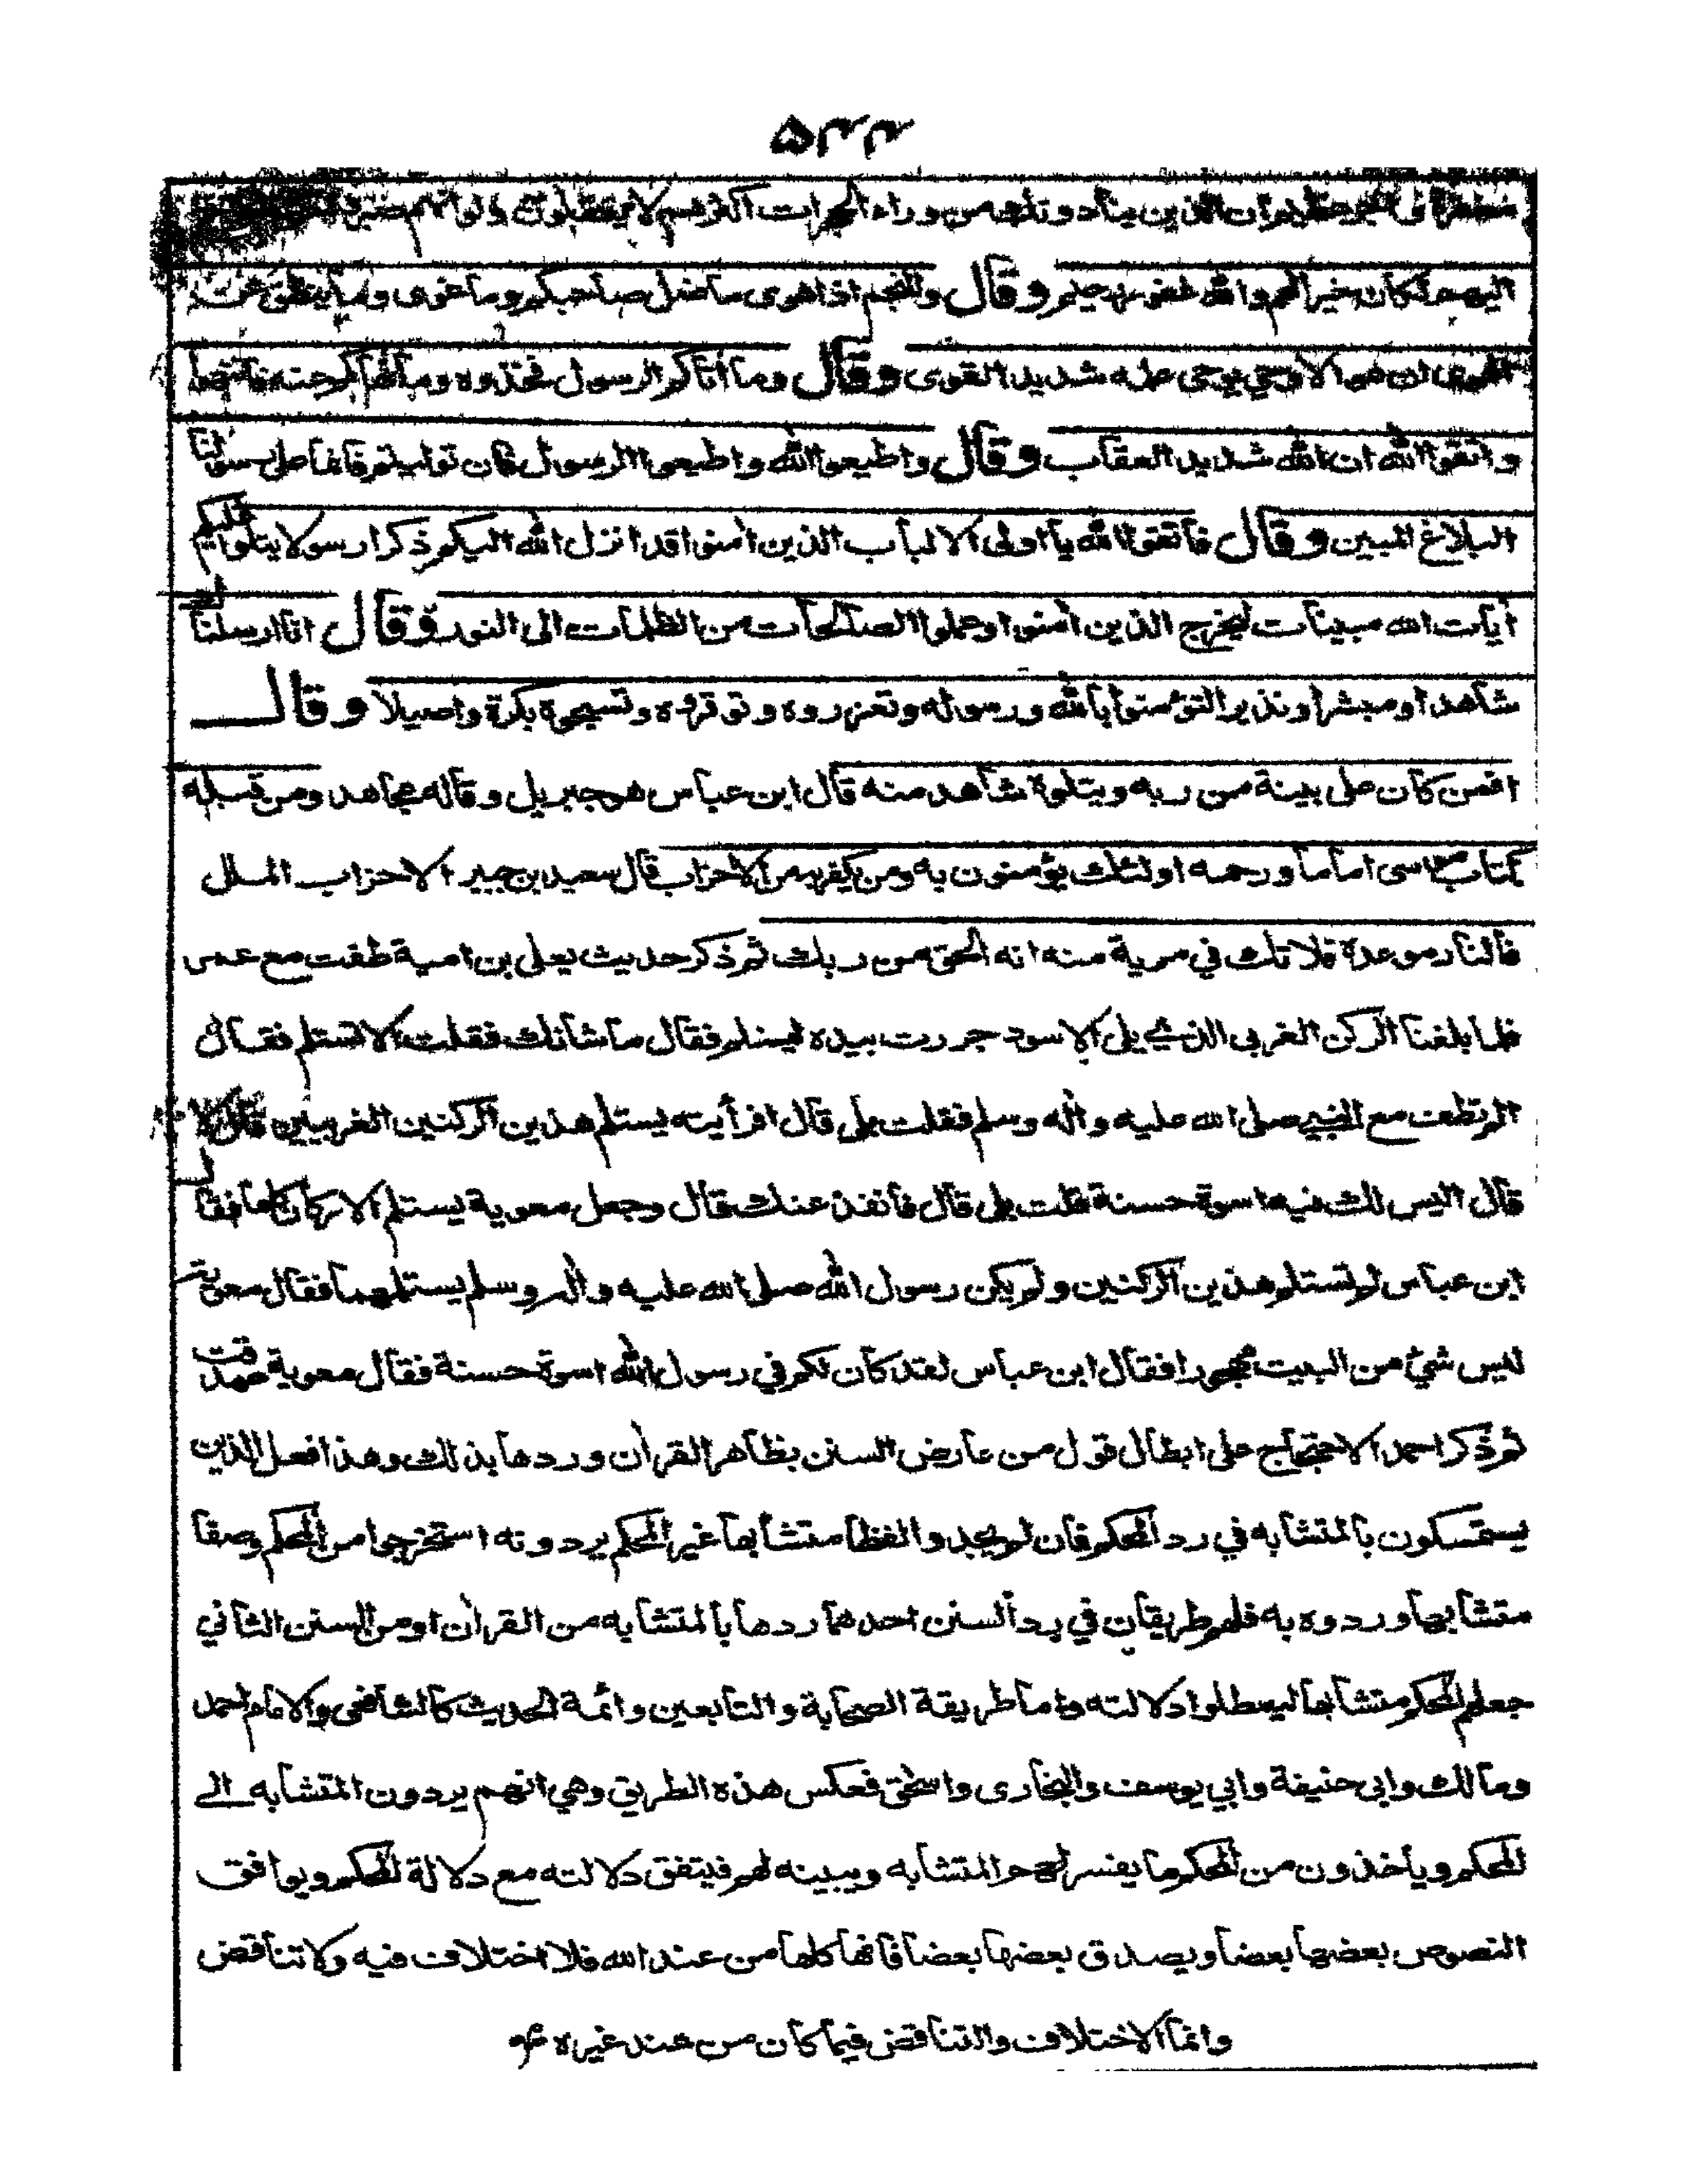 ۵۴۴
مغفرة واجر عظيم ان الذين ينادونك من وراء الحجرات اكثرهم لا يعقلون ولو انهم صبروا
اليهم لكان خيرا لهم والله غفور رحيم وقال والنجم اذا هوى ما ضل صاحبكم وما غوى وما ينطق عن
الهوى ان هو الا وحي يوحى علمه شديد القوى وقال وما أتاكم الرسول فخذوه وما نهاكم عنه فانتهوا
واتقوا الله ان الله شديد العقاب وقال واطيعوا الله واطيعوا الرسول فان توليتم فانما على رسولنا
البلاغ المبين وقال فاتقوا الله يا اولى الالباب الذين أمنوا قد انزل الله اليكم ذكرا رسولا يتلوا عليكم
أيات الله مبينات ليخرج الذين أمنوا وعملوا الصالحات من الظلمات الى النور وقال انا ارسلناك
شاهدا ومبشرا ونذيرا لتؤمنوا بالله ورسوله وتعزروه وتوقروه وتسبحوه بكرة واصيلا وقال
افمن كان على بينة من ربه ويتلوه شاهد منه قال ابن عباس هو جبريل وقاله مجاهد ومن قبله
كتاب موسى اماما ورحمه اولئك يؤمنون به ومن يكفر به من الاحزاب قال سعيد بن جبير الاحزاب الملل
فالنار موعده فلا تك في مرية منه انه الحق من ربك ثم ذكر حديث يعلى بن امية طفت مع عمر
فلما بلغنا الركن الغربي الذي يلى الاسود جررت بيده ليستلم فقال ما شانك فقلت الا تستلم فقال
الم تطف مع النبي صلى الله عليه وأله وسلم فقلت بلى قال افرأيته يستلم هذين الركنين الغربيين قال لا
قال اليس لك فيه اسوة حسنة قلت بلى قال فانفذ عنك قال وجعل معوية يستلم الاركان كلها فقال
ابن عباس لم تستلم هذين الركنين ولم يكن رسول الله صلى الله عليه وأله وسلم يستلمهما فقال معوية
ليس شيء من البيت مهجورا فقال ابن عباس لقد كان لكم في رسول الله اسوة حسنة فقال معوية صدقت
ثم ذكر احمد الاحتجاج على ابطال قول من عارض السنن بظاهر القرأن وردها بذلك وهذا فعل الذين
يستمسكون بالمتشابه في رد المحكم فان لم يجدوا لفظا متشابها غير المحكم يردونه استخرجوا من المحكم وصفا
متشابها وردوه به فلهم طريقان في رد السنن احدهما ردها بالمتشابه من القرأن او من السنن الثاني
جعلهم المحكم متشابها ليعطلوا دلالته واما طريقة الصحابة والتابعين وائمة الحديث كالشافعى والامام احمد
ومالك وابى حنيفة وابي يوسف والبخارى واسحٰق فعكس هذه الطريق وهي انهم يردون المتشابه الى
المحكم ويأخذون من المحكم ما يفسر لهم المتشابه ويبينه لهم فيتفق دلالته مع دلالة المحكم ويوافق
النصوص بعضها بعضا ويصدق بعضها بعضا فانها كلها من عند الله فلا اختلاف فيه ولا تناقض
وانما الاختلاف والتناقض فيما كان من عند غيره